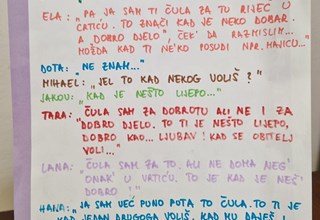 ELA: "PA JA SAM TI ČULA ZA TU RIJEČ U
VRTIĆU. TO ZNAČI KAD JE NEKO DOBAR.
A DOBRO DJELO", ČEK' DA RAZMISLIM...
MOŽDA KAD TI NE'KO POSUDI NPR. MAJICU..."
DOTA: "NE ZNAM..."
MIHAEL: "JEL TO KAD NEKOG VOLIŠ?"
JAKOV: "KAD JE NEŠTO LIJEPO..."
TARA: "ČULA SAM ZA DOBROTU ALI NE I ZA
DOBRO DJELO. TO TI JE NEŠTO LIJEPO,
DOBRO KAO... LJUBAV! KAD SE OBITELJ
VOLI..."
LANA: "ČULA SAM ZA TO, ALI NE DOMA NEG'
ONAK' U VRTIĆU. TO JE KAD JE NEŠ'
DOBRO!"
HANA: "JA SAM VEĆ PUNO PUTA TO ČULA. TO TI JE
KAD JEDAN DRUGOGA VOLIŠ. KAD MU DAJEŠ